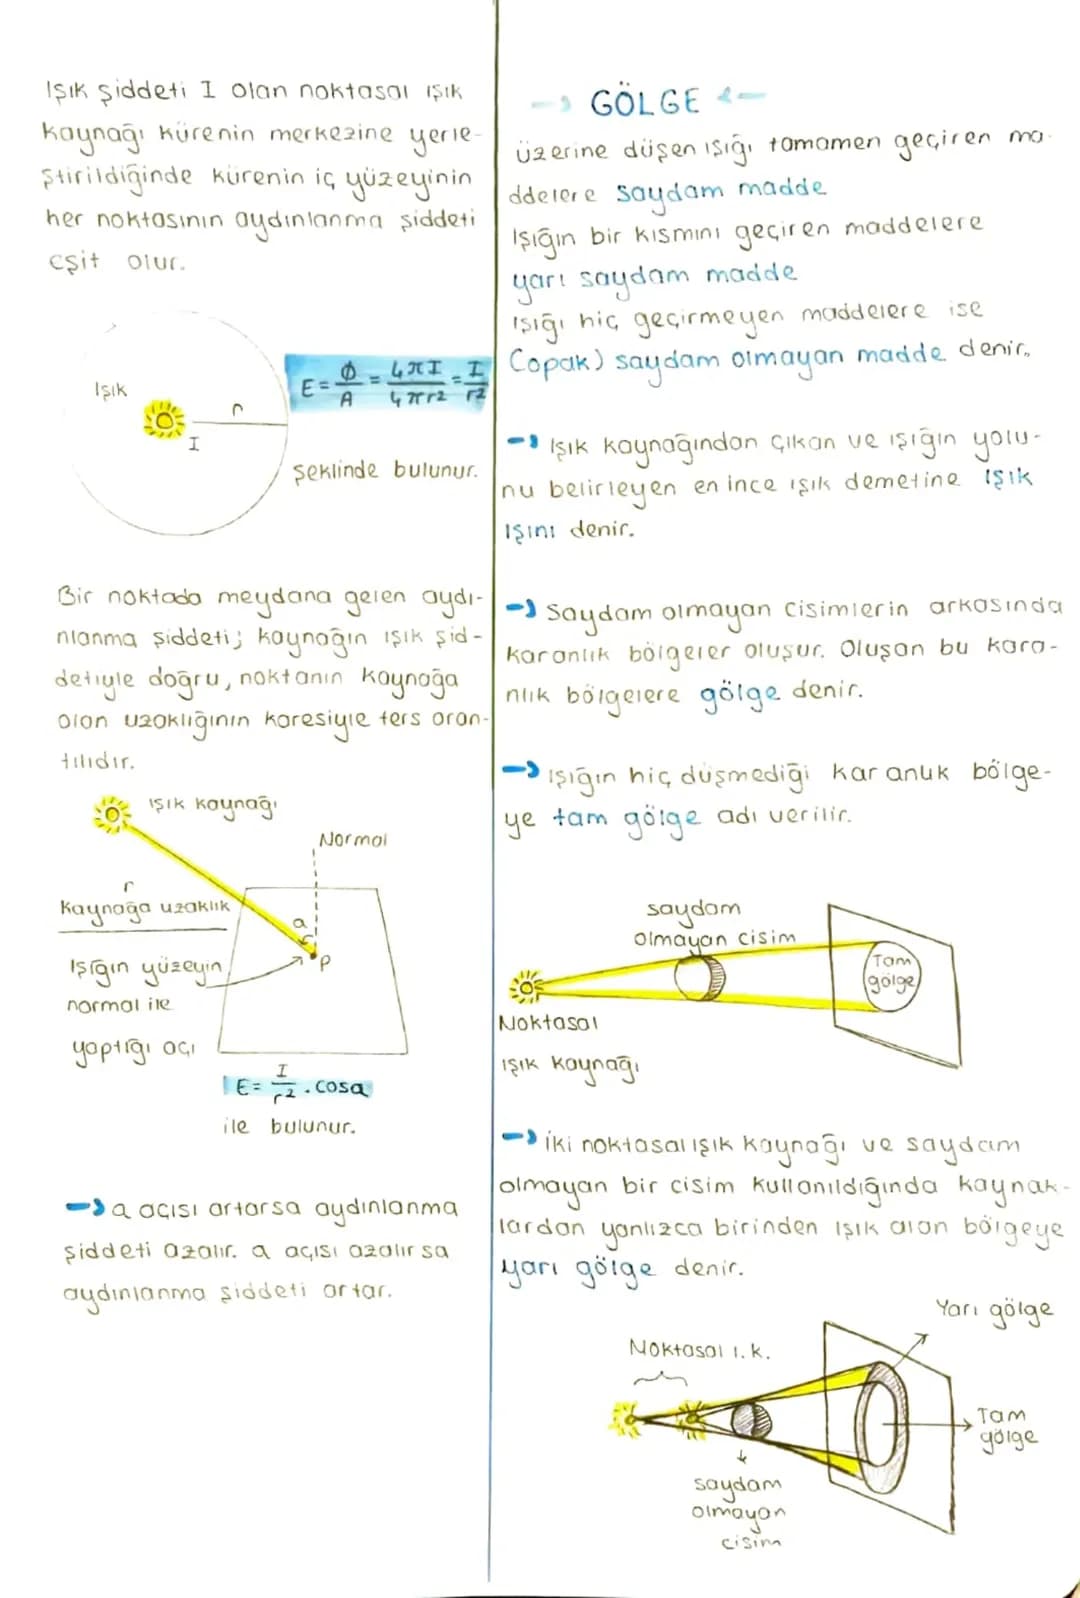 Işık şiddeti I olan noktasal ışık
kaynağı kürenin merkezine yerle-
ştirildiğinde kürenin iç yüzeyinin
her noktasının aydınlanma şiddeti
eşit olur.
Işık
r
I
E = Φ/A = 4πI/4πr² = I/r²
şeklinde bulunur.
Bir noktada meydana gelen aydı-
nlanma şiddeti; kaynağın ışık şid-
detiyle doğru, noktanın kaynağa
olan uzaklığının karesiyle ters oran-
tılıdır.
ışık kaynağı
Normal
r
Kaynağa uzaklık
a
P
Işığın yüzeyin
normal ile
yaptığı açı
E = I/r² . cosa
ile bulunur.
→ a açısı artarsa aydınlanma
şiddeti azalır. a açısı azalırsa
aydınlanma şiddeti artar.
→ GÖLGE ←
üzerine düşen ışığı tamamen geçiren ma-
ddelere saydam madde
Işığın bir kısmını geçiren maddelere
yarı saydam madde
ışığı hiç geçirmeyen maddelere ise
(opak) saydam olmayan madde denir.
→ Işık kaynağından çıkan ve ışığın yolu-
nu belirleyen en ince ışık demetine ışık
ışını denir.
→ Saydam olmayan cisimlerin arkasında
karanlık bölgeler oluşur. Oluşan bu kara-
nlık bölgelere gölge denir.
→ ışığın hiç düşmediği karanlık bölge-
ye tam gölge adı verilir.
saydam
olmayan cisim
Tam
gölge
Noktasal
ışık kaynağı
→ iki noktasal ışık kaynağı ve saydam
olmayan bir cisim kullanıldığında kaynak-
lardan yanlızca birinden ışık alan bölgeye
yarı gölge denir.
Yarı gölge
Noktasal ı.k.
Tam
gölge
saydam
olmayan
cisim